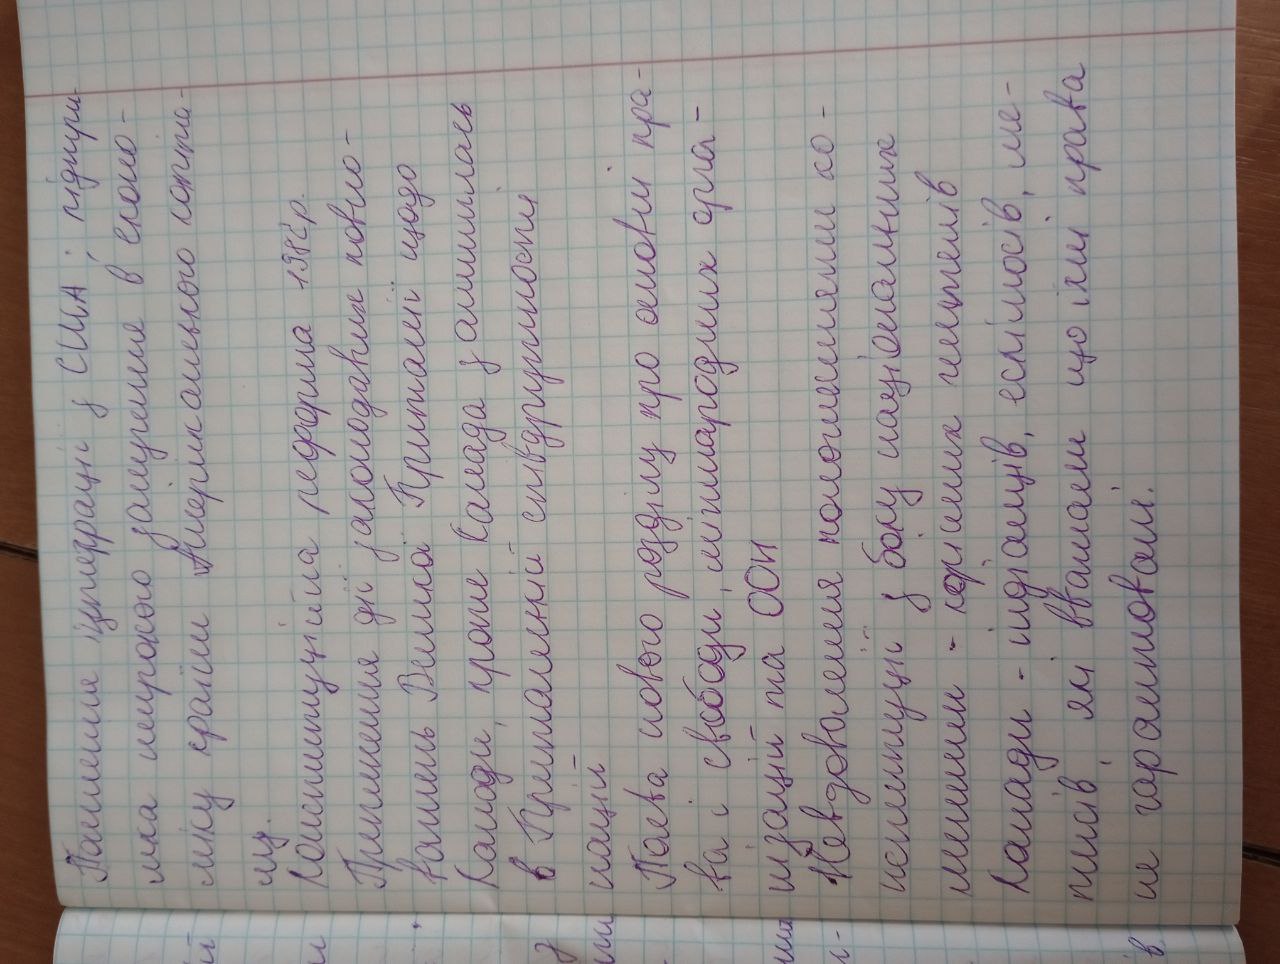 Посилення інтеграції з США; підтри-
мка широкого залучення в еконо-
міку країни Американського капіта-
лу.
Конституційна реформа 1982р.
Припинення дії законодавчих повно-
важень Великої Британії щодо
Канади, проте Канада залишилась
в Британській співдружності
націй
Поява нового розділу про основні пра-
ва і свободи, міжнародних орга-
нізацій та ООН
Невдоволення положеннями ко-
нституції з боку національних
меншин - корінних жителів
Канади - індіанців, ескімосів, ме-
тисів, які вважали що їхні права
не гарантовані.